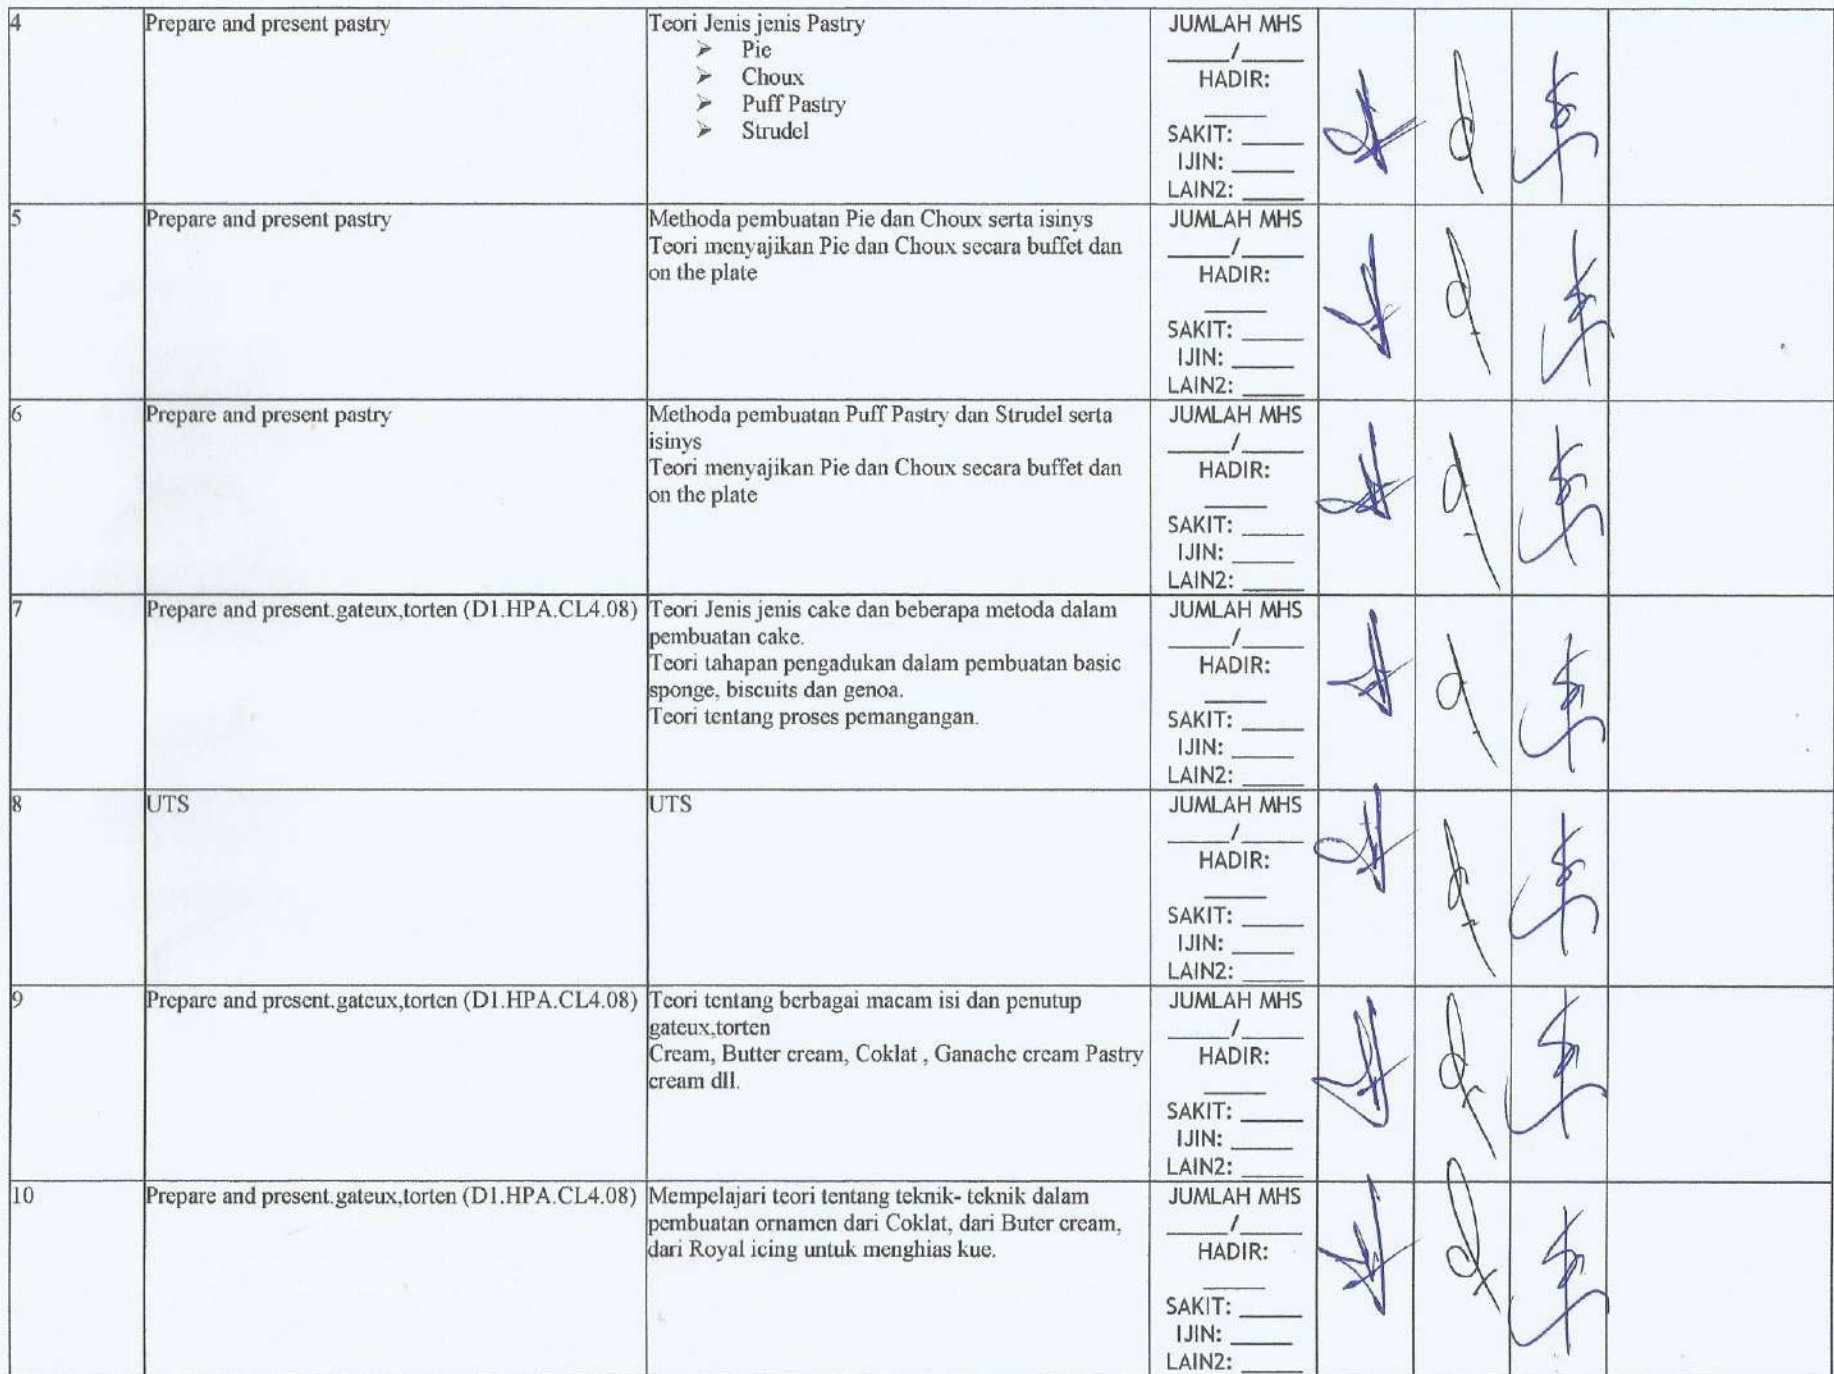 4
Prepare and present pastry
Teori Jenis jenis Pastry
➢ Pie
➢ Choux
➢ Puff Pastry
➢ Strudel
JUMLAH MHS
_____/_____
HADIR:
_____
SAKIT: _____
IJIN: _____
LAIN2: _____
5
Prepare and present pastry
Methoda pembuatan Pie dan Choux serta isinys
Teori menyajikan Pie dan Choux secara buffet dan
on the plate
JUMLAH MHS
_____/_____
HADIR:
_____
SAKIT: _____
IJIN: _____
LAIN2: _____
6
Prepare and present pastry
Methoda pembuatan Puff Pastry dan Strudel serta
isinys
Teori menyajikan Pie dan Choux secara buffet dan
on the plate
JUMLAH MHS
_____/_____
HADIR:
_____
SAKIT: _____
IJIN: _____
LAIN2: _____
7
Prepare and present.gateux,torten (D1.HPA.CL4.08)
Teori Jenis jenis cake dan beberapa metoda dalam
pembuatan cake.
Teori tahapan pengadukan dalam pembuatan basic
sponge, biscuits dan genoa.
Teori tentang proses pemangangan.
JUMLAH MHS
_____/_____
HADIR:
_____
SAKIT: _____
IJIN: _____
LAIN2: _____
8
UTS
UTS
JUMLAH MHS
_____/_____
HADIR:
_____
SAKIT: _____
IJIN: _____
LAIN2: _____
9
Prepare and present.gateux,torten (D1.HPA.CL4.08)
Teori tentang berbagai macam isi dan penutup
gateux,torten
Cream, Butter cream, Coklat , Ganache cream Pastry
cream dll.
JUMLAH MHS
_____/_____
HADIR:
_____
SAKIT: _____
IJIN: _____
LAIN2: _____
10
Prepare and present.gateux,torten (D1.HPA.CL4.08)
Mempelajari teori tentang teknik- teknik dalam
pembuatan ornamen dari Coklat, dari Buter cream,
dari Royal icing untuk menghias kue.
JUMLAH MHS
_____/_____
HADIR:
_____
SAKIT: _____
IJIN: _____
LAIN2: _____